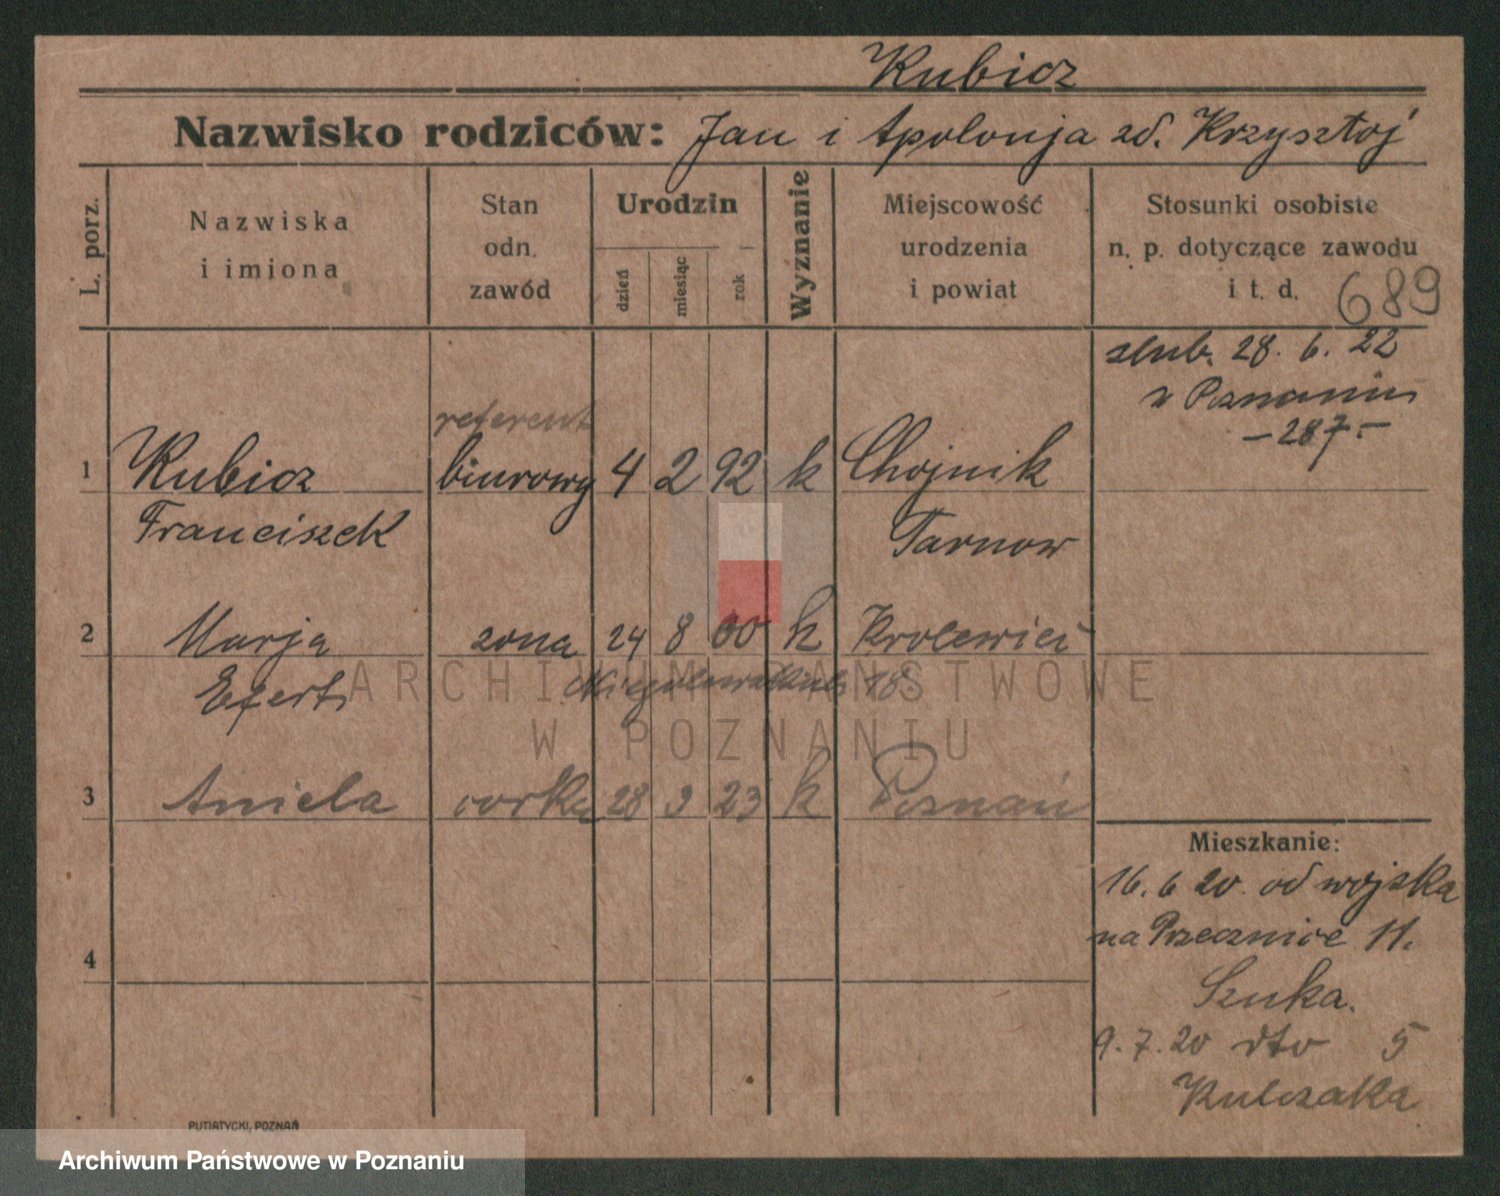 Kubicz
Nazwisko rodziców: Jan i Apolonja zd. Krzysztof
L. porz.
Nazwiska
i imiona
Stan
odn.
zawód
Urodzin
dzień
miesiąc
rok
Wyznanie
Miejscowość
urodzenia
i powiat
Stosunki osobiste
n. p. dotyczące zawodu
i t. d.
689
slub. 28. 6. 22
w Poznaniu
- 287.-
referent
1 Kubicz biurowy 4 2 92 k Chojnik
Franciszek Tarnow
2 Marja zona 24 8 00 k Krolewiec
Efert 18
3 Aniela corka 28 9 23 k Poznań
4
Mieszkanie:
16. 6 20. od wojska
na Przecznice 11.
Szuka.
9. 7. 20 dto 5
Kulczaka
PUTIATYCKI, POZNAŃ
ARCHIWUM PAŃSTWOWE
W POZNANIU
Archiwum Państwowe w Poznaniu